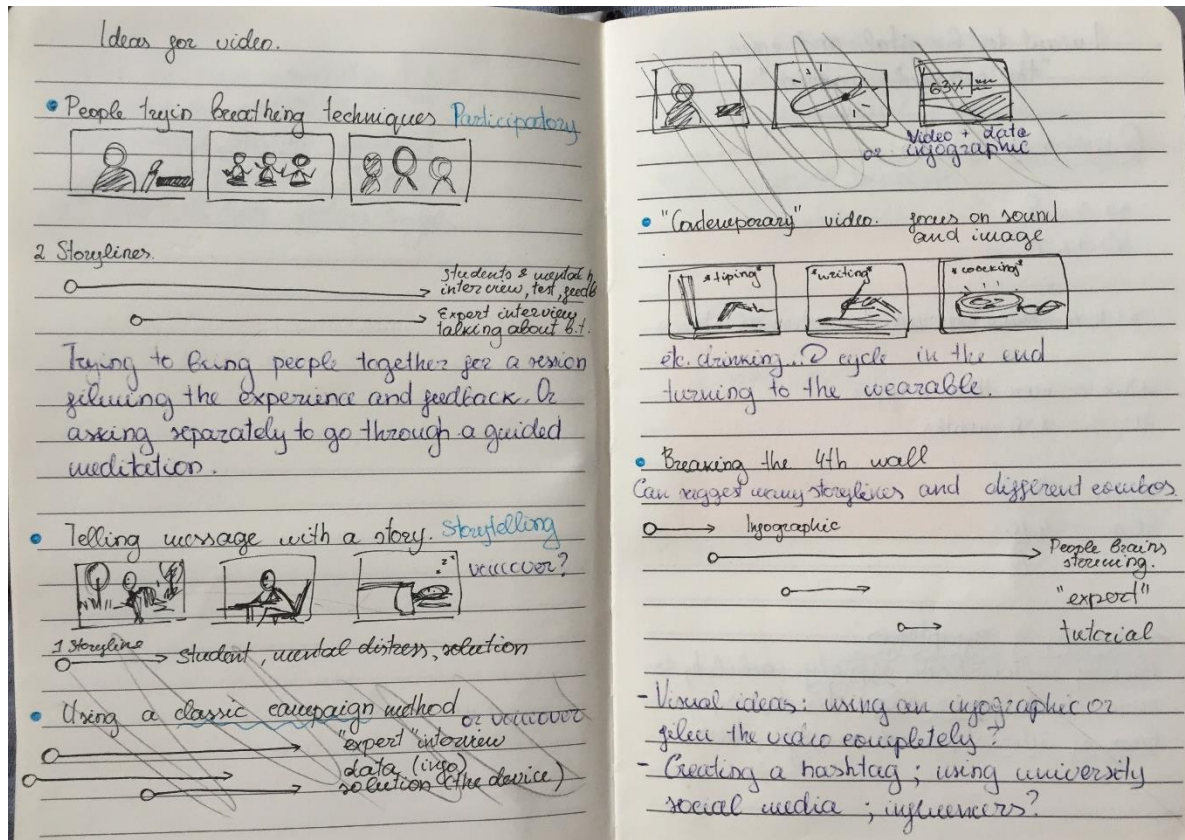 Ideas for video.
People tryin breathing techniques Participatory
2 Storylines.
Students & mental h
interview, test, feedb
Expert interview
talking about b.t.
Trying to bring people together for a session
filming the experience and feedback. Or
asking separately to go through a guided
meditation.
Telling message with a story. Storytelling
voiceover?
1 Storyline
Student, mental distress, solution
Using a classic campaign method or voiceover
"expert" interview
data (info)
solution (the device)
63%
Video + data
or infographic
"Contemporary" video. focus on sound
and image
*tiping*
*writing*
*coocking*
etc. drinking... cycle in the end
turning to the wearable.
Breaking the 4th wall
Can suggest many storylines and different combos.
Infographic
People brains
storming.
"expert"
tutorial
- Visual ideas: using an infographic or
film the video completely?
- Creating a hashtag; using university
social media; influencers?